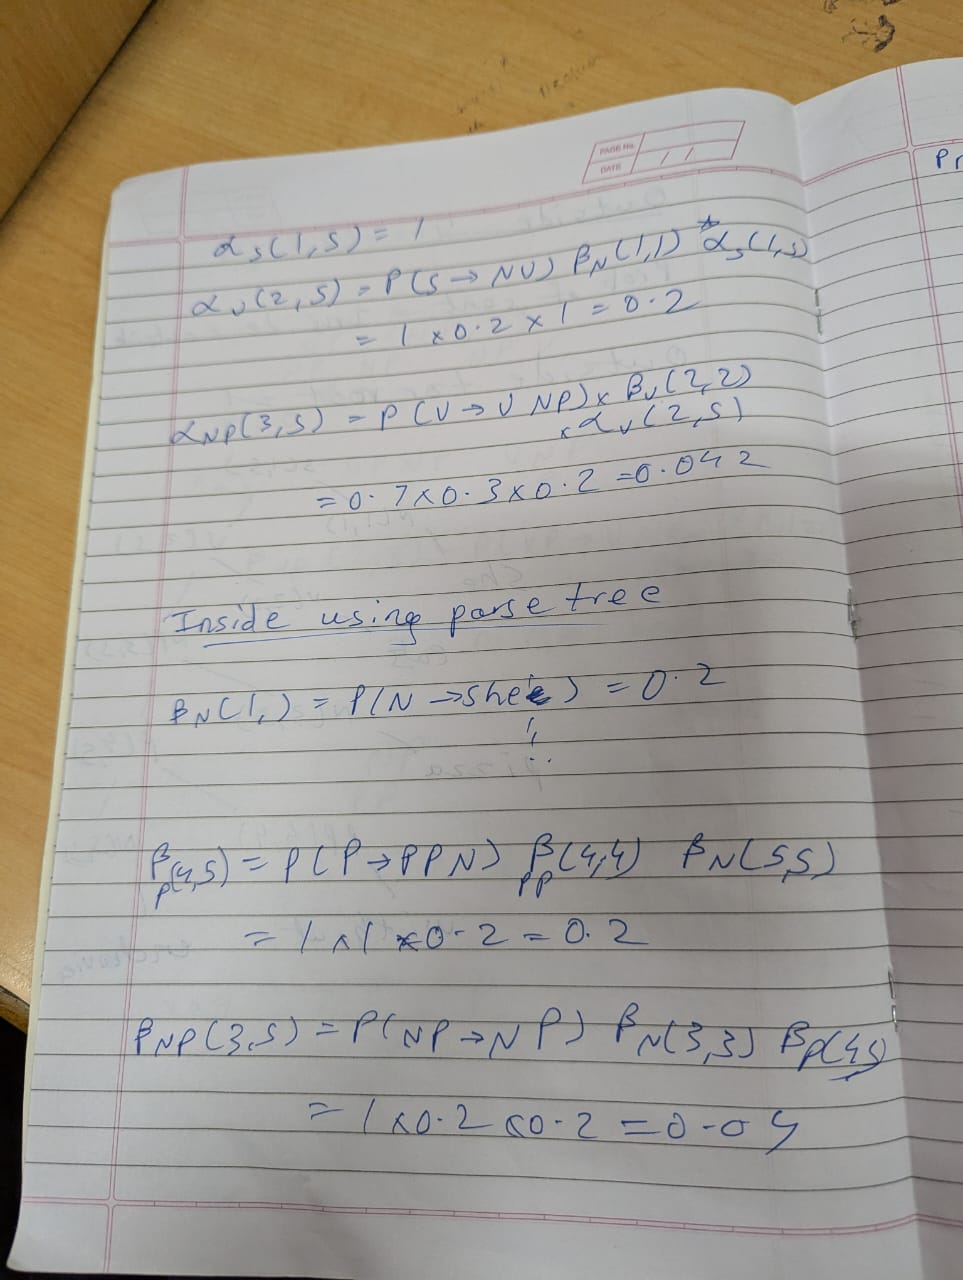 PAGE No.
DATE / /
Pr
α_s(1,5) = 1
α_v(2,5) = P(S → NV) β_N(1,1) * α_s(1,5)
= 1 × 0.2 × 1 = 0.2
α_NP(3,5) = P(V → V NP) × β_V(2,2)
× α_v(2,5)
= 0.7 × 0.3 × 0.2 = 0.042
Inside using parse tree
β_N(1,) = P(N → She) = 0.2
β_P(4,5) = P(P → PP N) β_PP(4,4) β_N(5,5)
= 1 × 1 × 0.2 = 0.2
β_NP(3,5) = P(NP → N P) β_N(3,3) β_P(4,5)
= 1 × 0.2 × 0.2 = 0.04